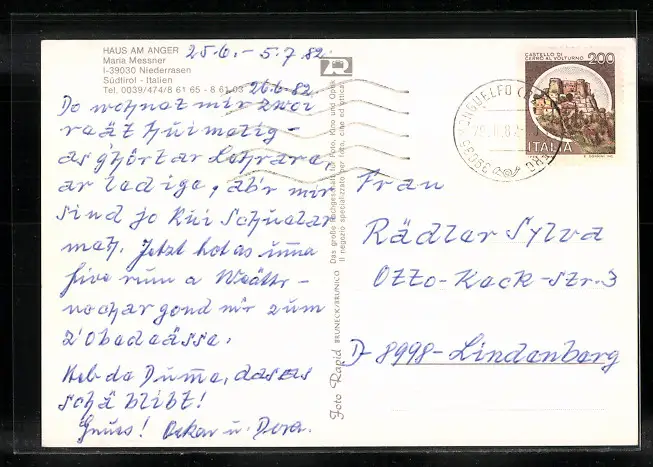 HAUS AM ANGER
Maria Messner
I-39030 Niederrasen
Südtirol - Italien
Tel. 0039/474/8 61 65 - 8 61 03
25.6. - 5.7.82
26.6.82
Do wohnat mir zwoi
reät huimatig -
as ghörtar Lehrare,
ar ledige, ab'r mir
sind jo kui Schuelar
meh. Jetzt hot as
rum a Weättr -
nochar gond mir zum
z'Obadässa.
Heb da Duma, dass as
schä blibt!
Gruss! Oskar u. Dora.
Foto Rapid BRUNECK/BRUNICO
Das große Fachgeschäft für Foto, Kino und Optik
Il negozio specializzato per foto, cine ed ottica
CASTELLO DI
CERRO AL VOLTURNO
200
ITALIA
39035
Frau
Rädler Sylva
Otto-Keck-Str. 3
D-8998-Lindenberg